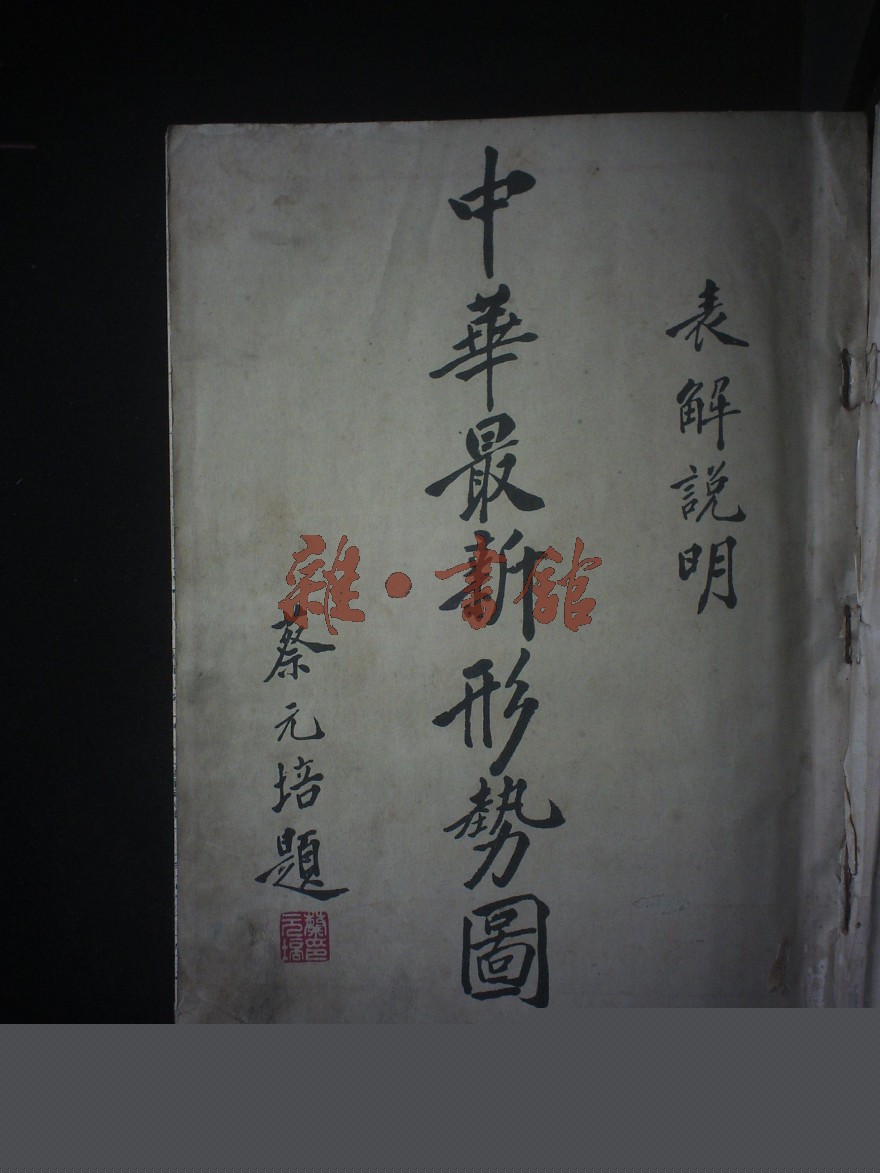 表解説明
中華最新形勢圖
蔡元培題
蔡元培印
雜·書館